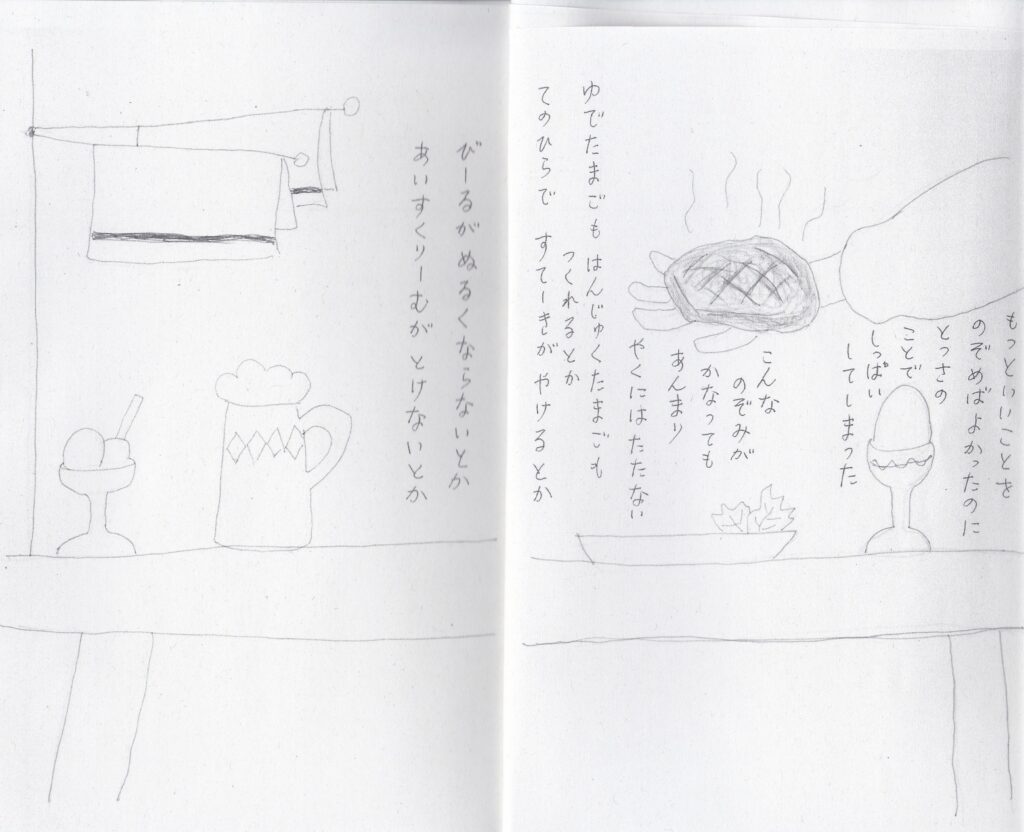 もっといいことを
のぞめばよかったのに
とっさの
ことで
しっぱい
してしまった
こんな
のぞみが
かなっても
あんまり
やくにはたたない
ゆでたまごも はんじゅくたまごも
つくれるとか
てのひらで すてーきが やけるとか
びーるが ぬるくならないとか
あいすくりーむが とけないとか